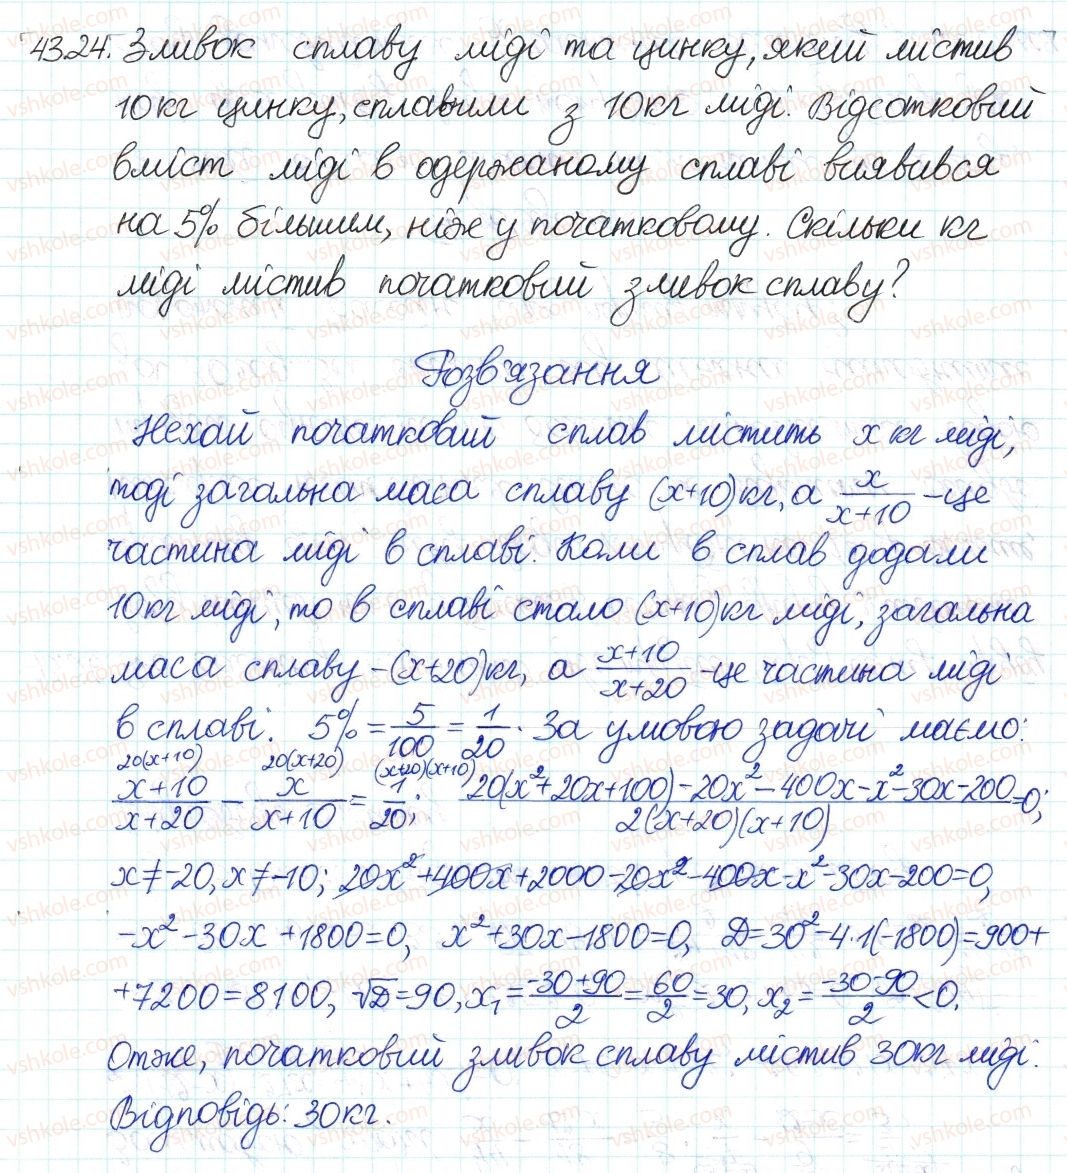 43.24. Зливок сплаву міді та цинку, який містив
10 кг цинку, сплавили з 10 кг міді. Відсотковий
вміст міді в одержаному сплаві виявився
на 5% більшим, ніж у початковому. Скільки кг
міді містив початковий зливок сплаву?
Розв'язання
Нехай початковий сплав містить x кг міді,
тоді загальна маса сплаву (x+10) кг, а x/(x+10) - це
частина міді в сплаві. Коли в сплав додали
10 кг міді, то в сплаві стало (x+10) кг міді, загальна
маса сплаву - (x+20) кг, а (x+10)/(x+20) - це частина міді
в сплаві. 5% = 5/100 = 1/20. За умовою задачі маємо:
20(x+10) 20(x+20) (x+20)(x+10)
(x+10)/(x+20) - x/(x+10) = 1/20; (20(x²+20x+100)-20x²-400x-x²-30x-200)/(2(x+20)(x+10)) = 0;
x≠-20, x≠-10; 20x²+400x+2000-20x²-400x-x²-30x-200=0,
-x²-30x+1800=0, x²+30x-1800=0, D=30²-4·1(-1800)=900+
+7200=8100, √D=90, x₁=(-30+90)/2=60/2=30, x₂=(-30-90)/2<0.
Отже, початковий зливок сплаву містив 30 кг міді.
Відповідь: 30 кг.
vshkole.com